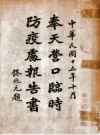 中華民國十五年十月
奉天營口臨時
防疫處報告書
題